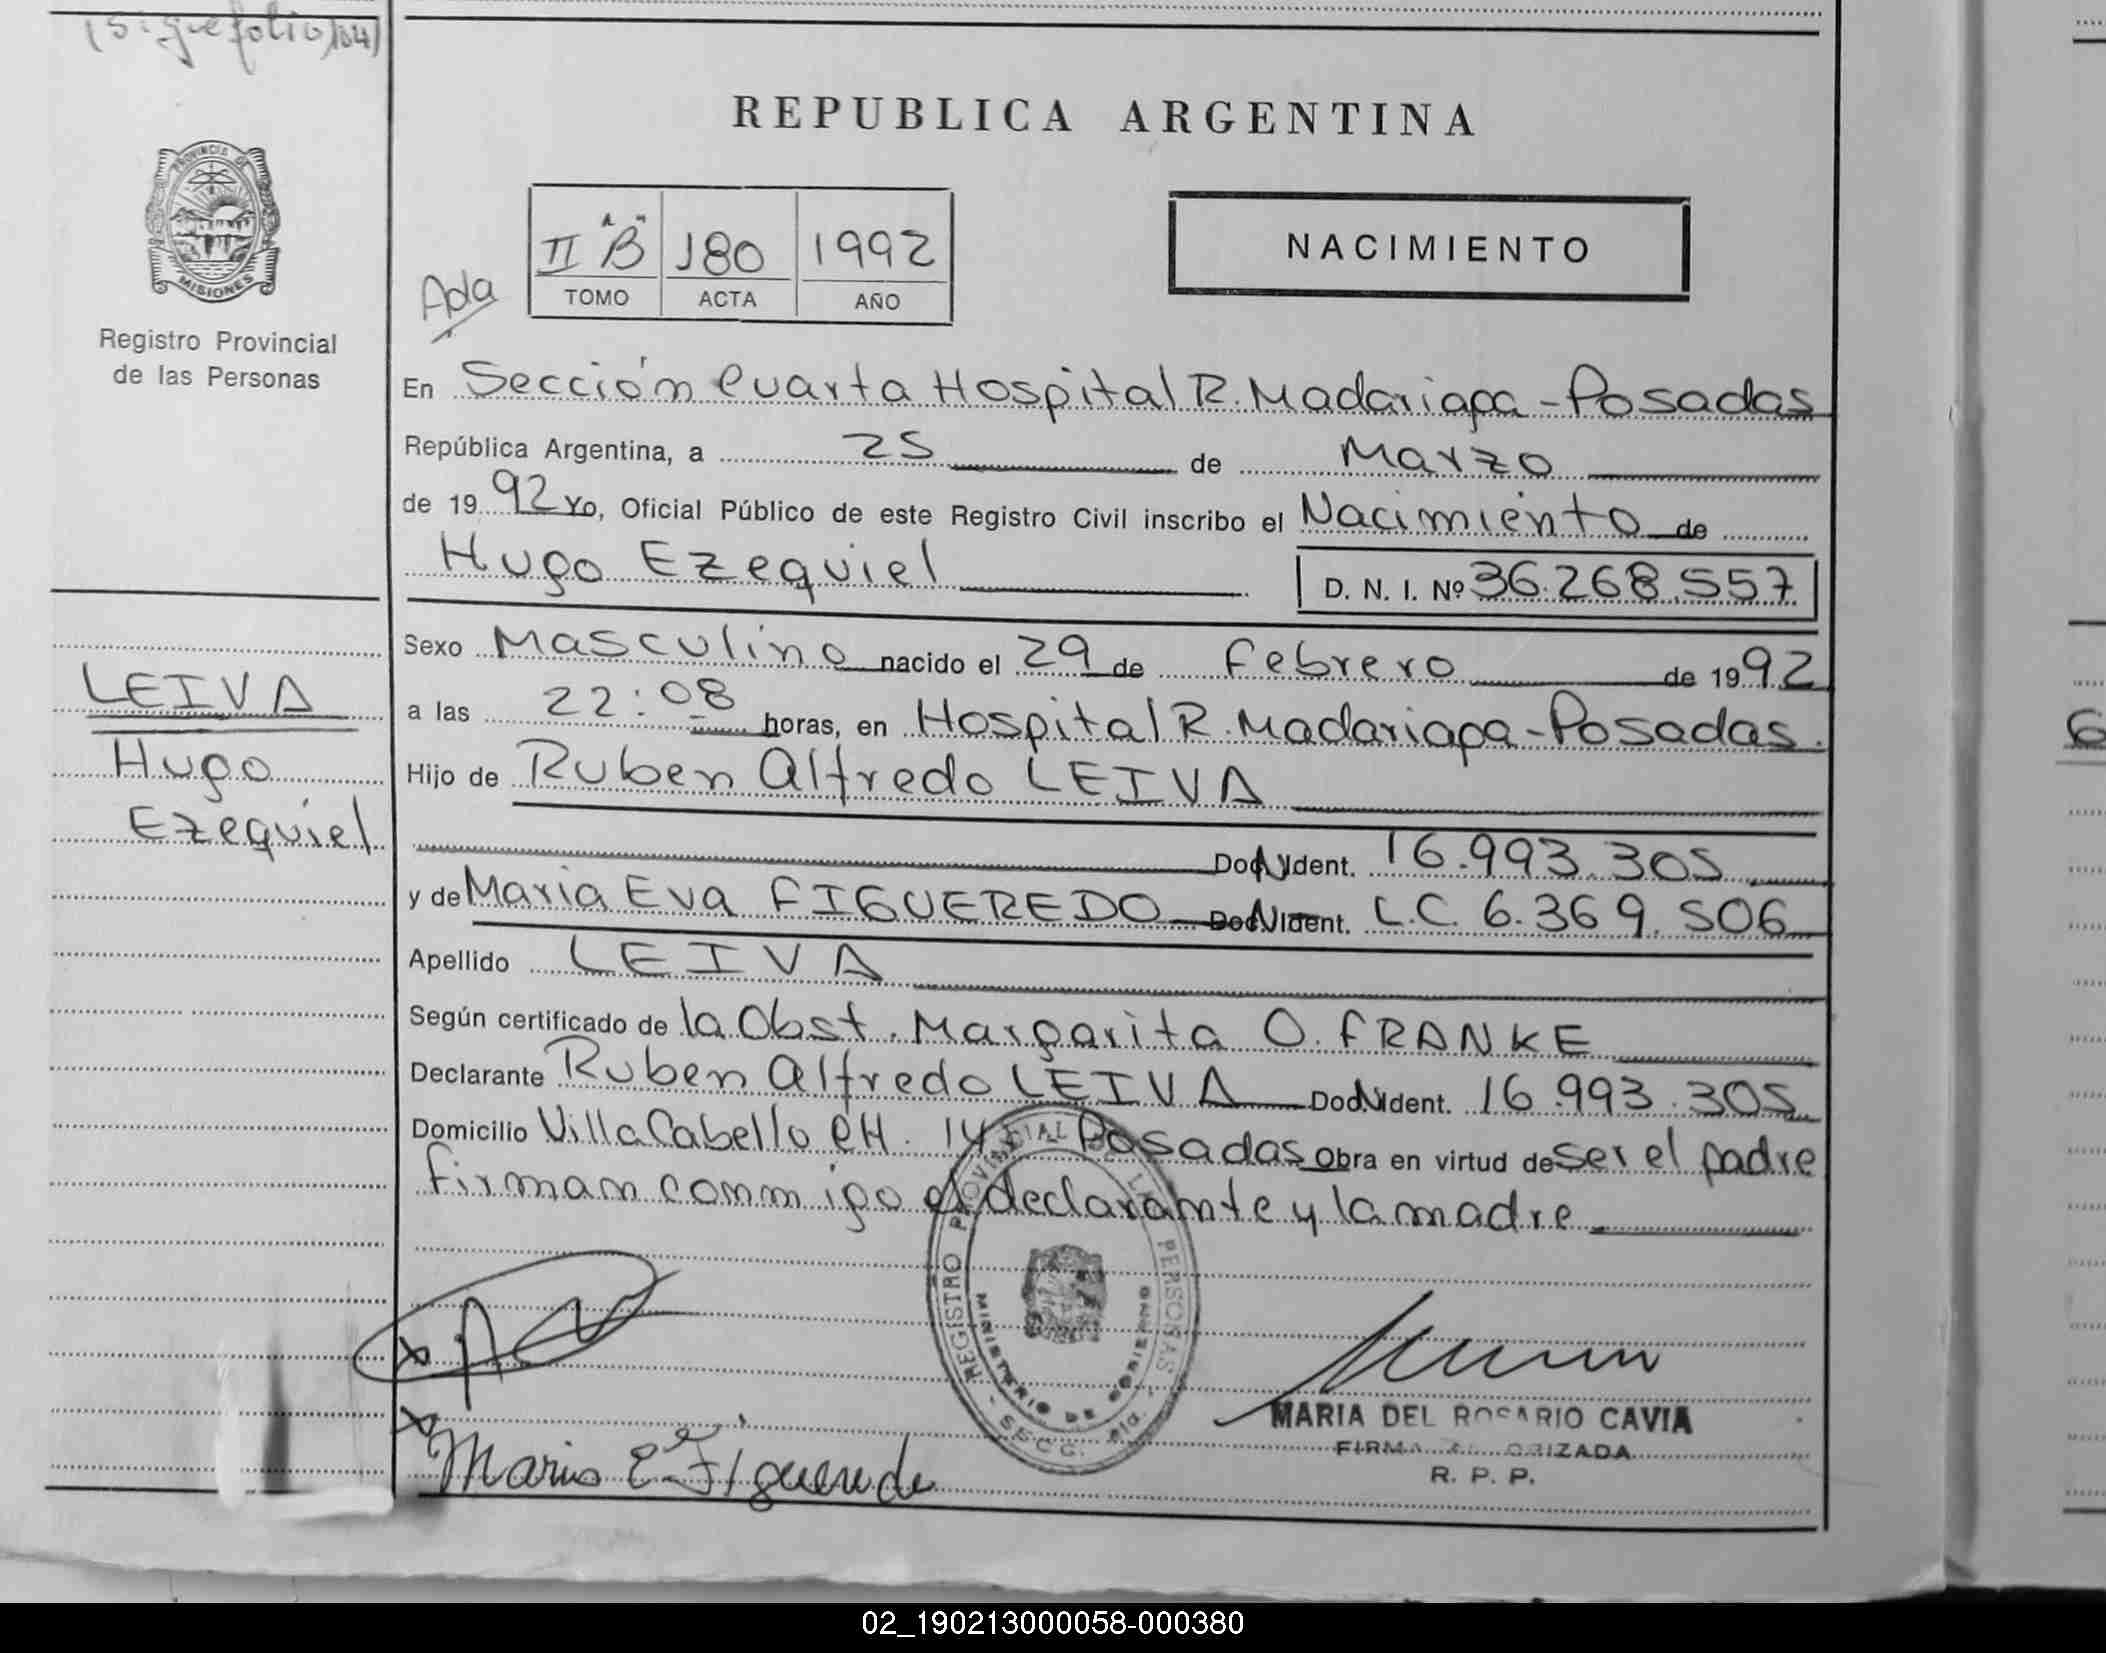 (Sigue folio 104)
REPUBLICA ARGENTINA
PROVINCIA DE
MISIONES
Registro Provincial
de las Personas
II "B" 180 1992
TOMO ACTA AÑO
Ada
NACIMIENTO
En Sección Cuarta Hospital R. Madariaga - Posadas
República Argentina, a 25 de Marzo
de 1992 Yo, Oficial Público de este Registro Civil inscribo el Nacimiento de
Hugo Ezequiel D. N. I. Nº 36.268.557
Sexo Masculino nacido el 29 de Febrero de 1992
a las 22:08 horas, en Hospital R. Madariaga - Posadas.
Hijo de Ruben Alfredo LEIVA
Doc. N. Ident. 16.993.305
y de Maria Eva FIGUEREDO Doc. N. Ident. L.C. 6.369.506
Apellido LEIVA
Según certificado de la Obst. Margarita O. FRANKE
Declarante Ruben Alfredo LEIVA Doc. N. Ident. 16.993.305
Domicilio Villa Cabello CH. 141 Posadas obra en virtud de ser el padre
firman conmigo el declarante y la madre
LEIVA
Hugo
Ezequiel
REGISTRO PROVINCIAL DE LAS PERSONAS
MINISTERIO DE GOBIERNO
SECC. 4ta.
Maria E. Figueredo
MARIA DEL ROSARIO CAVIA
FIRMA AUTORIZADA
R. P. P.
02_190213000058-000380